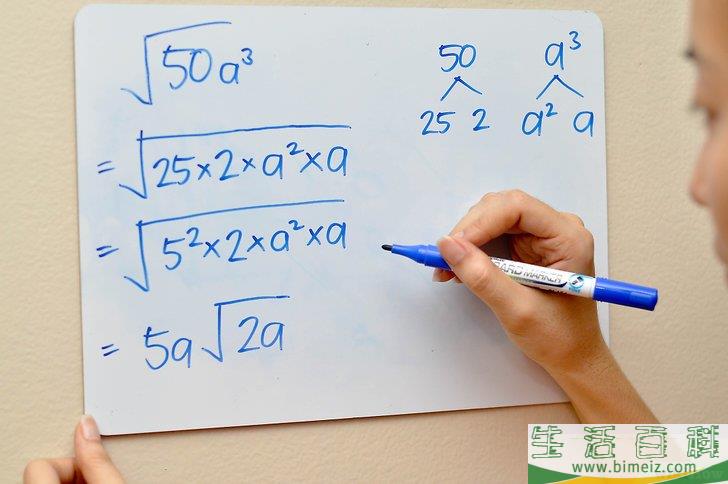 √50a³
= √25×2×a²×a
= √5²×2×a²×a
= 5a√2a
50 a³
25 2 a² a
BOARD MARKER
生活百科
www.bimeiz.com